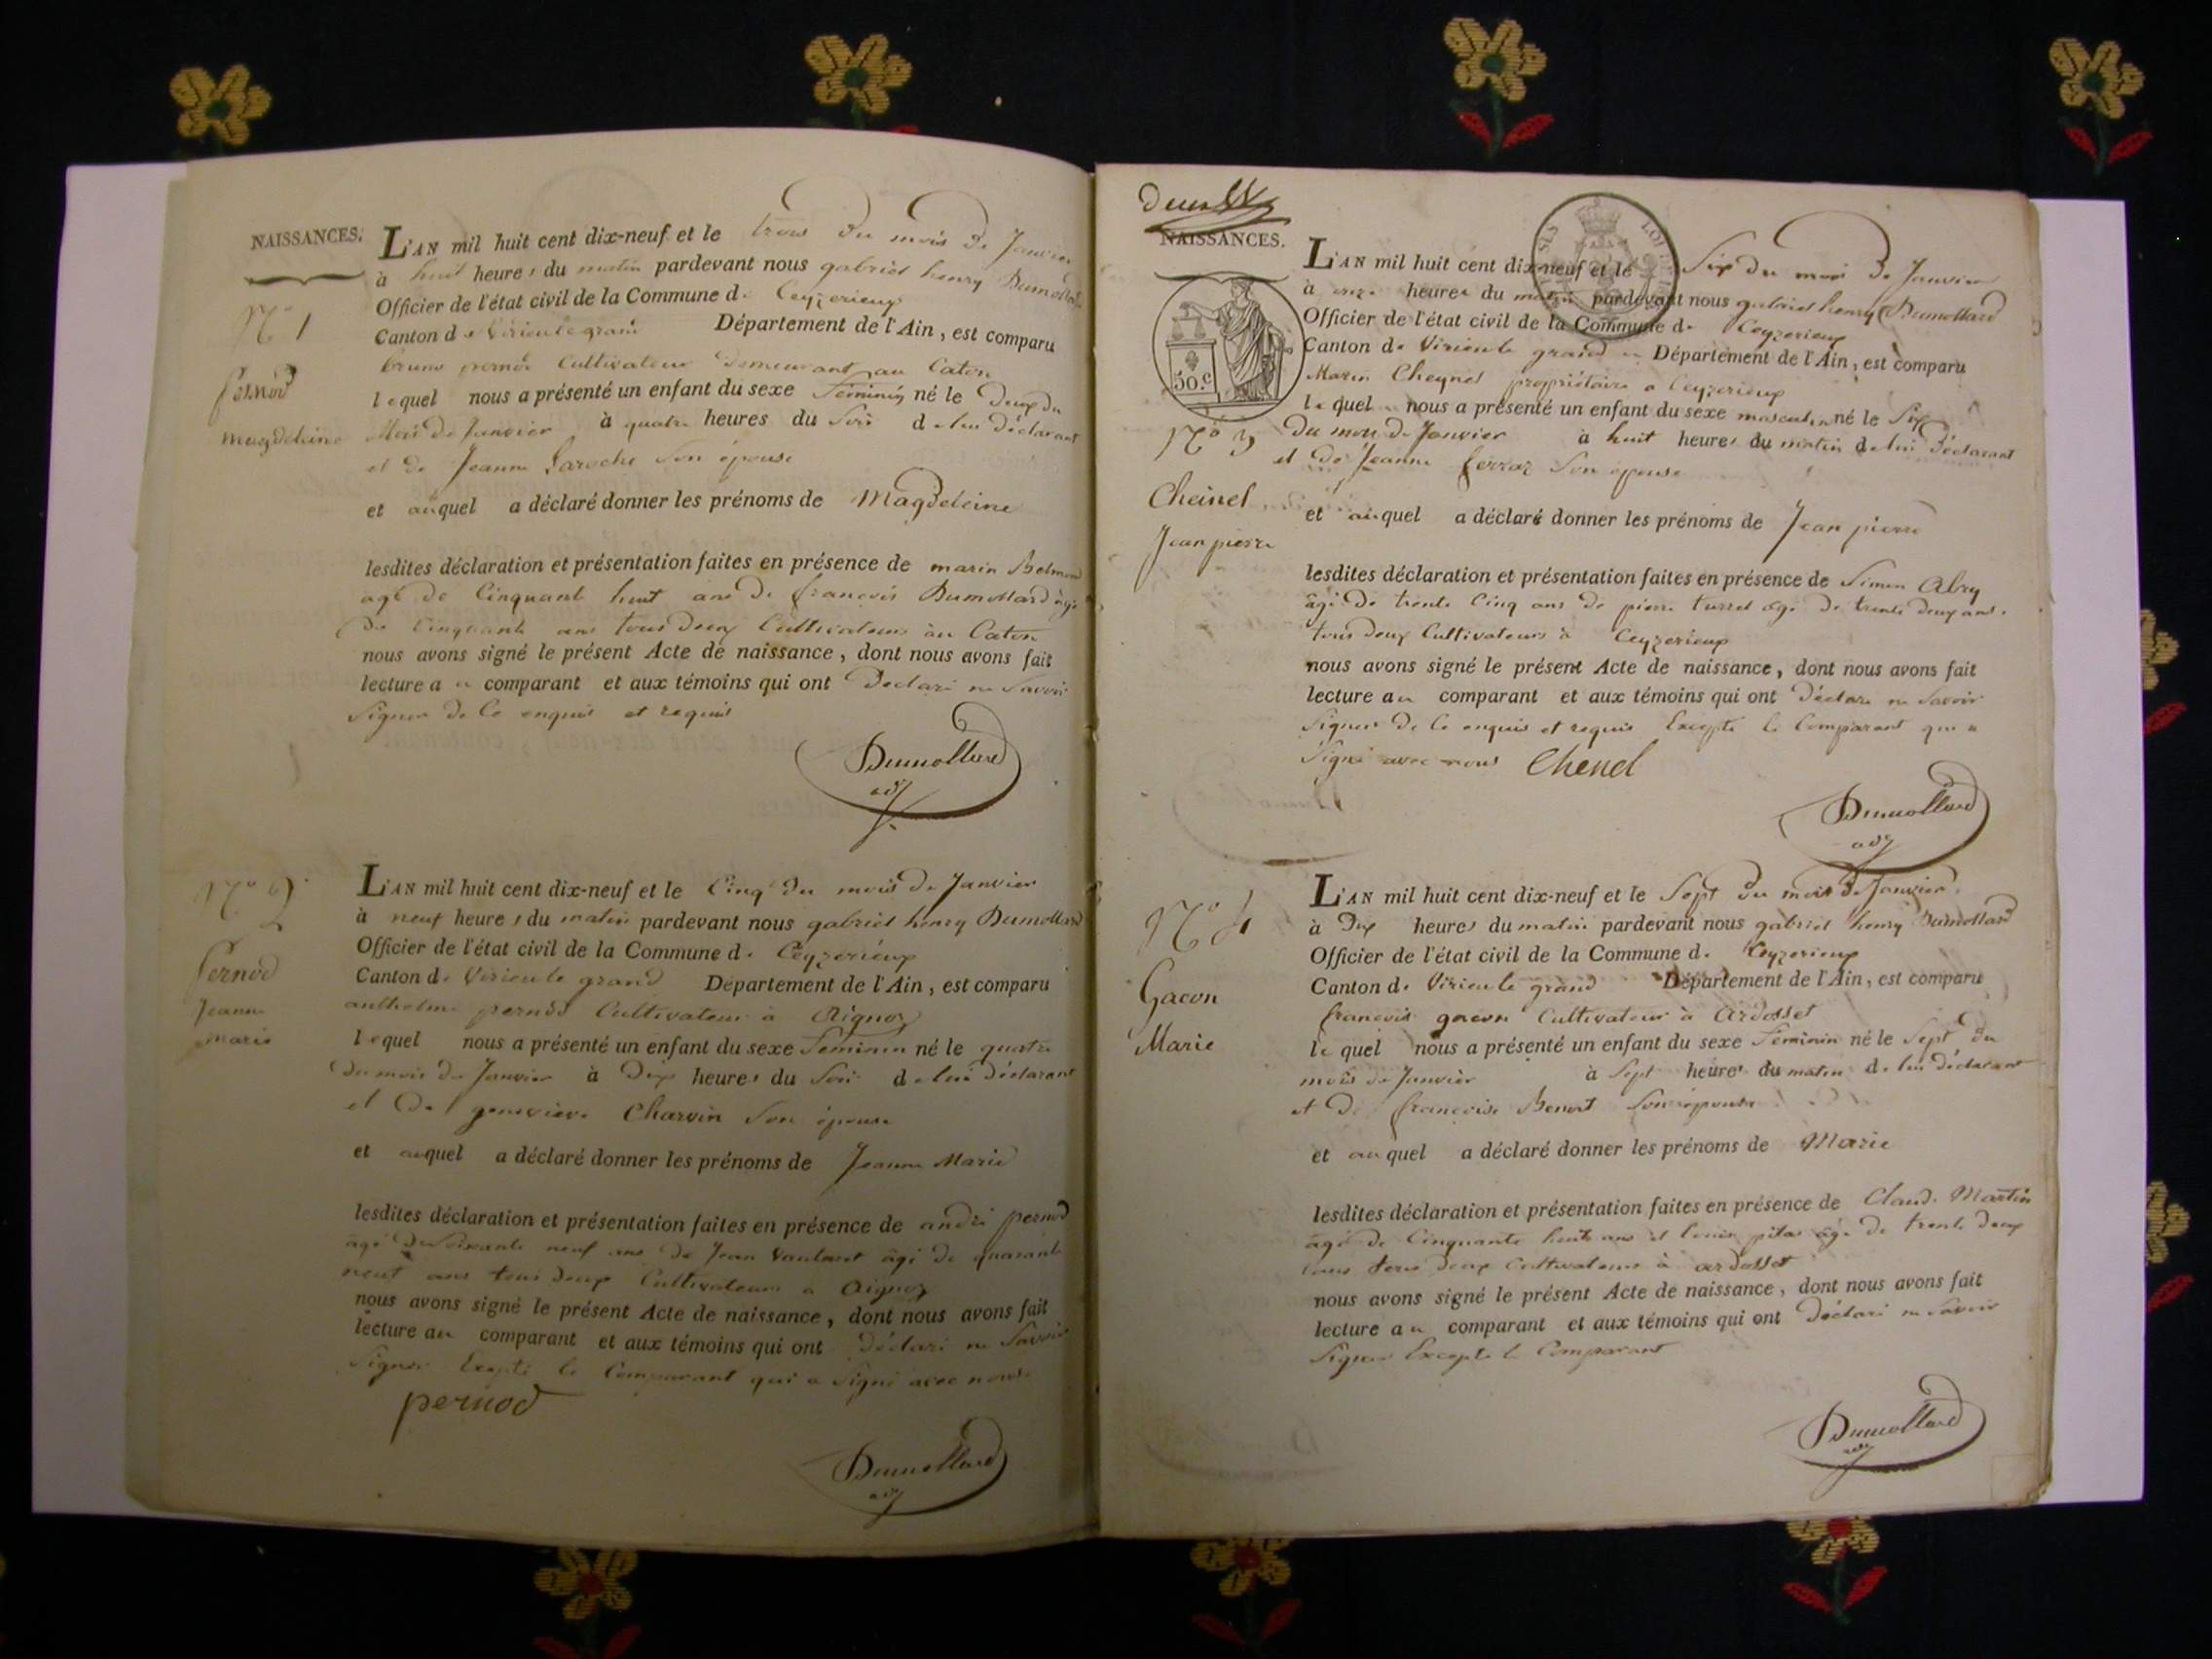 NAISSANCES.
N.o 1
pernod
magdeleine
L'AN mil huit cent dix-neuf et le trois du mois de Janvier
à huit heures du matin pardevant nous gabriel henry Dumollard
Officier de l'état civil de la Commune de Ceyzerieux
Canton de Virieu le grand Département de l'Ain, est comparu
bruno pernod Cultivateur demeurant au Caton
lequel nous a présenté un enfant du sexe feminin né le deux du
Mois de Janvier à quatre heures du soir de lui déclarant
et de Jeanne Laroche son épouse
et auquel a déclaré donner les prénoms de Magdeleine
lesdites déclaration et présentation faites en présence de marin Belmond
agé de Cinquante huit ans de francois Dumollard agé
de Cinquante ans tous deux Cultivateurs au Caton
nous avons signé le présent Acte de naissance, dont nous avons fait
lecture au comparant et aux témoins qui ont déclaré ne savoir
signer de ce enquis et requis
Dumollard
adj
N.o 2
Pernod
Jeanne
marie
L'AN mil huit cent dix-neuf et le Cinq du mois de Janvier
à neuf heures du matin pardevant nous gabriel henry Dumollard
Officier de l'état civil de la Commune de Ceyzerieux
Canton de Virieu le grand Département de l'Ain, est comparu
anthelme pernod Cultivateur a Aignoz
lequel nous a présenté un enfant du sexe feminin né le quatre
du mois de Janvier à dix heures du soir de lui déclarant
et de genevieve Charvin son épouse
et auquel a déclaré donner les prénoms de Jeanne Marie
lesdites déclaration et présentation faites en présence de andré pernod
agé de soixante neuf ans de Jean Vautaret âgé de quarante
neuf ans tous deux Cultivateurs a Aignoz
nous avons signé le présent Acte de naissance, dont nous avons fait
lecture au comparant et aux témoins qui ont déclaré ne savoir
signer Excepté le Comparant qui a signé avec nous
pernod
Dumollard
adj
deux
NAISSANCES.
50.c
N.o 3
Cheinel
Jean pierre
L'AN mil huit cent dix-neuf et le six du mois de Janvier
à onze heures du matin pardevant nous gabriel henry Dumollard
Officier de l'état civil de la Commune de Ceyzerieux
Canton de Virieu le grand Département de l'Ain, est comparu
Marin Cheynel propriétaire a Ceyzerieux
lequel nous a présenté un enfant du sexe masculin né le six
du mois de Janvier à huit heures du matin de lui déclarant
et de Jeanne ferraz son épouse
et auquel a déclaré donner les prénoms de Jean pierre
lesdites déclaration et présentation faites en présence de Simon Abry
âgé de trente Cinq ans de pierre turrel agé de trente deux ans
tous deux Cultivateurs à Ceyzerieux
nous avons signé le présent Acte de naissance, dont nous avons fait
lecture au comparant et aux témoins qui ont déclaré ne savoir
signer de ce enquis et requis Excepté le Comparant qui a
signé avec nous Chenel
Dumollard
adj
N.o 4
Gacon
Marie
L'AN mil huit cent dix-neuf et le sept du mois de Janvier
à dix heures du matin pardevant nous gabriel henry Dumollard
Officier de l'état civil de la Commune de Ceyzerieux
Canton de Virieu le grand Département de l'Ain, est comparu
francois gacon Cultivateur a Ardosset
lequel nous a présenté un enfant du sexe feminin né le sept du
mois de Janvier à sept heures du matin de lui déclarant
et de francoise Benoit son épouse
et auquel a déclaré donner les prénoms de Marie
lesdites déclaration et présentation faites en présence de Claude Martin
âgé de Cinquante huit ans et louis pitas âgé de trente deux
ans tous deux Cultivateurs à ardosset
nous avons signé le présent Acte de naissance, dont nous avons fait
lecture au comparant et aux témoins qui ont déclaré ne savoir
signer Excepté le Comparant
Dumollard